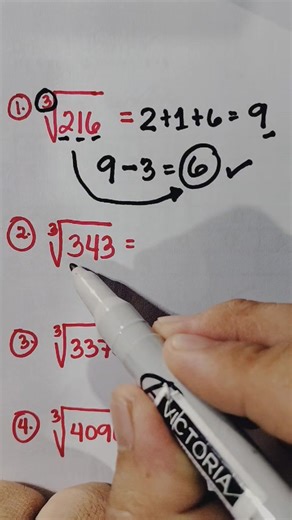 1. ³√216 = 2+1+6 = 9
9 - 3 = 6 ✓
2. ³√343 =
3. ³√337
4. ³√409
VICTORIA